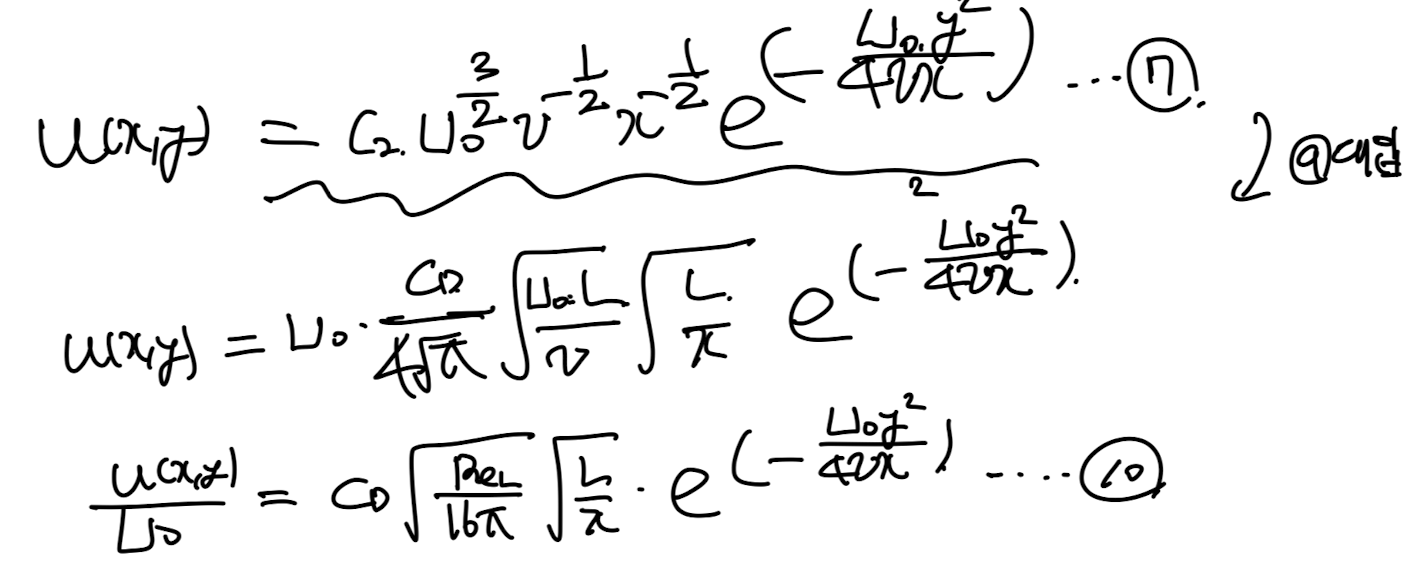 u(x,y) = C₂ · U₀^(3/2) ν^(-1/2) x^(-1/2) e^(- U₀·y²/4νx) ... ⑦
⤶ ⑨ 대입
u(x,y) = U₀ · C_D/(4√π) √(U₀·L/ν) √(L/x) e^(- U₀y²/4νx).
u(x,y)/U₀ = C_D √(Re_L/16π) √(L/x) · e^(- U₀y²/4νx) ..... ⑩